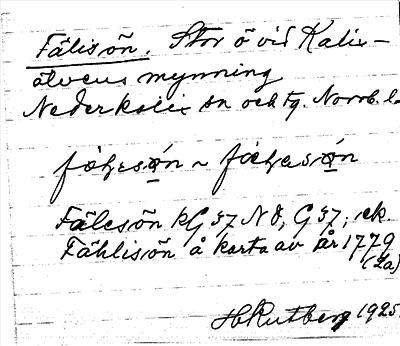 Fälisön. Stor ö vid Kalix-
älvens mynning
Nederkalix sn och tg. Norrb. l.
Fälesön kG 57 NO, G 57; ek.
Fählisön å karta av år 1779
(La)
HRutberg 1925